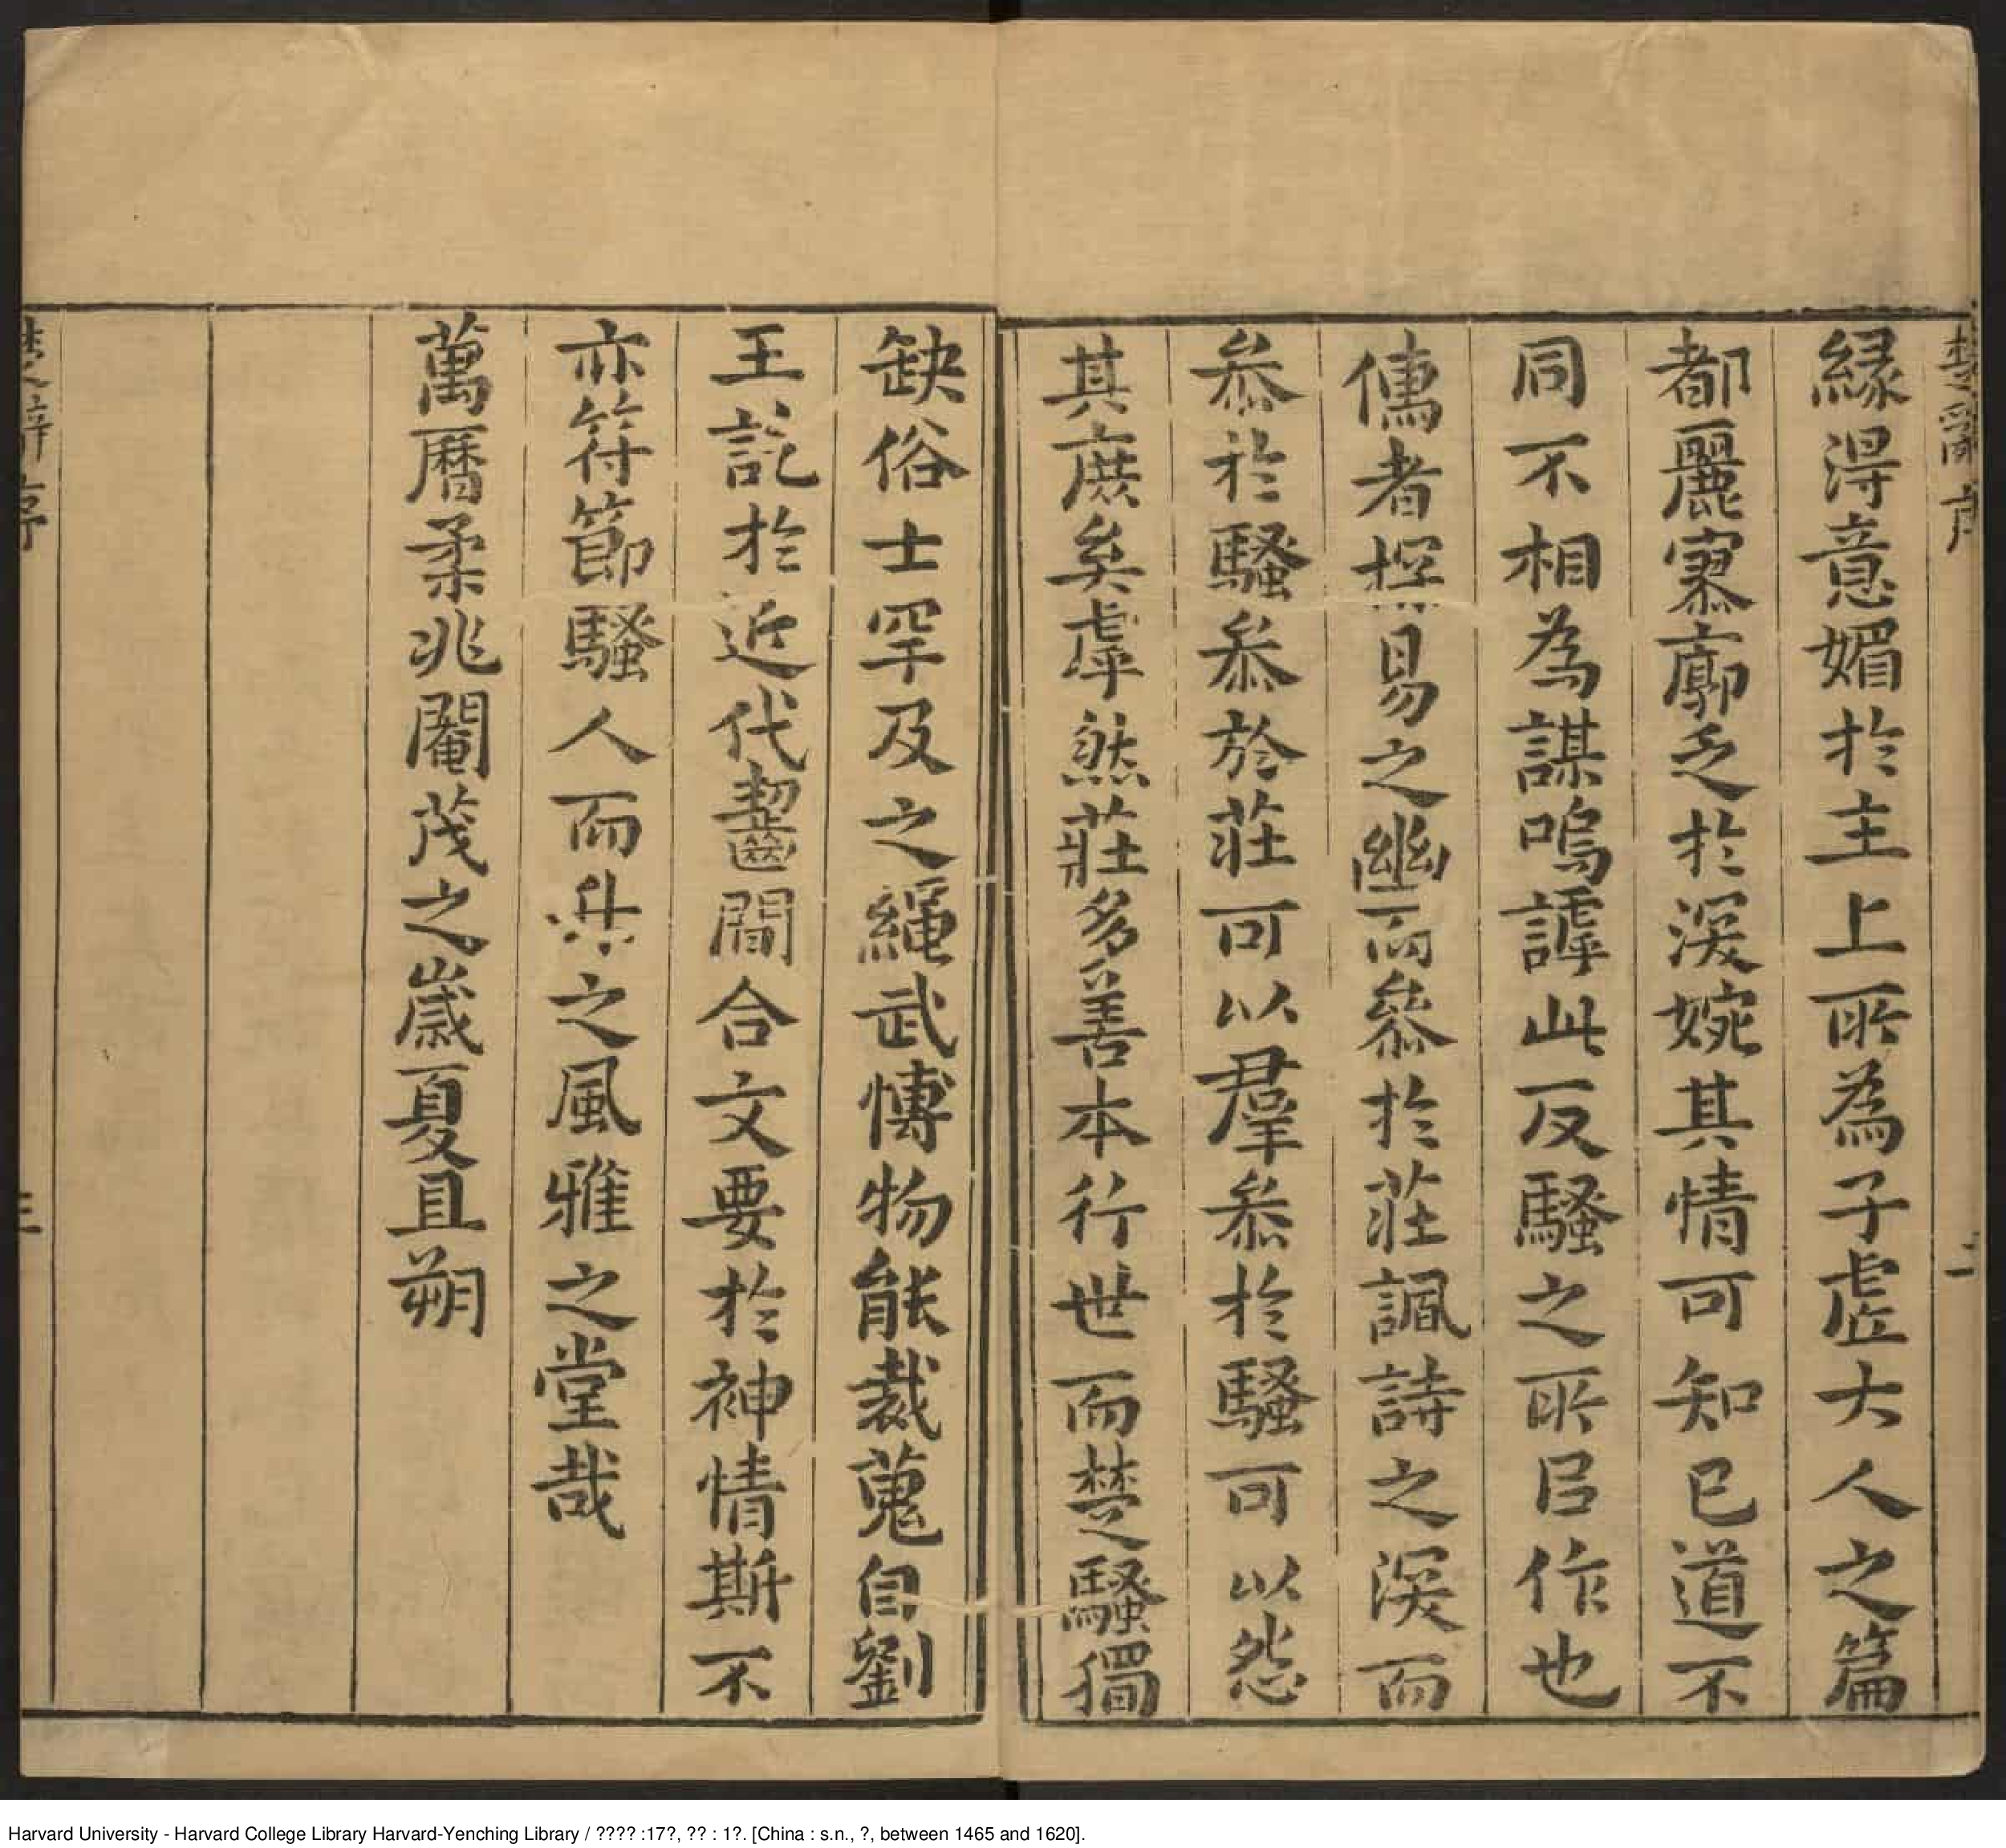 楚辭序
二
緣淂意媚於主上所為子虛大人之篇
都麗寥廓乏於深婉其情可知已道不
同不相為謀嗚謼此反騷之所㠯作也
儁者探易之幽而叅於莊諷詩之深而
叅於騷叅於莊可以羣叅於騷可以怨
其庶矣虖然莊多善本行世而楚騷獨
缺俗士罕及之繩武博物能裁蒐自劉
王訖於近代齧闗合文要於神情斯不
亦符節騷人而與之風雅之堂哉
萬曆柔兆閹茂之歲夏且朔
楚辭序
三
Harvard University - Harvard College Library Harvard-Yenching Library / ???? :17?, ?? : 1?. [China : s.n., ?, between 1465 and 1620].